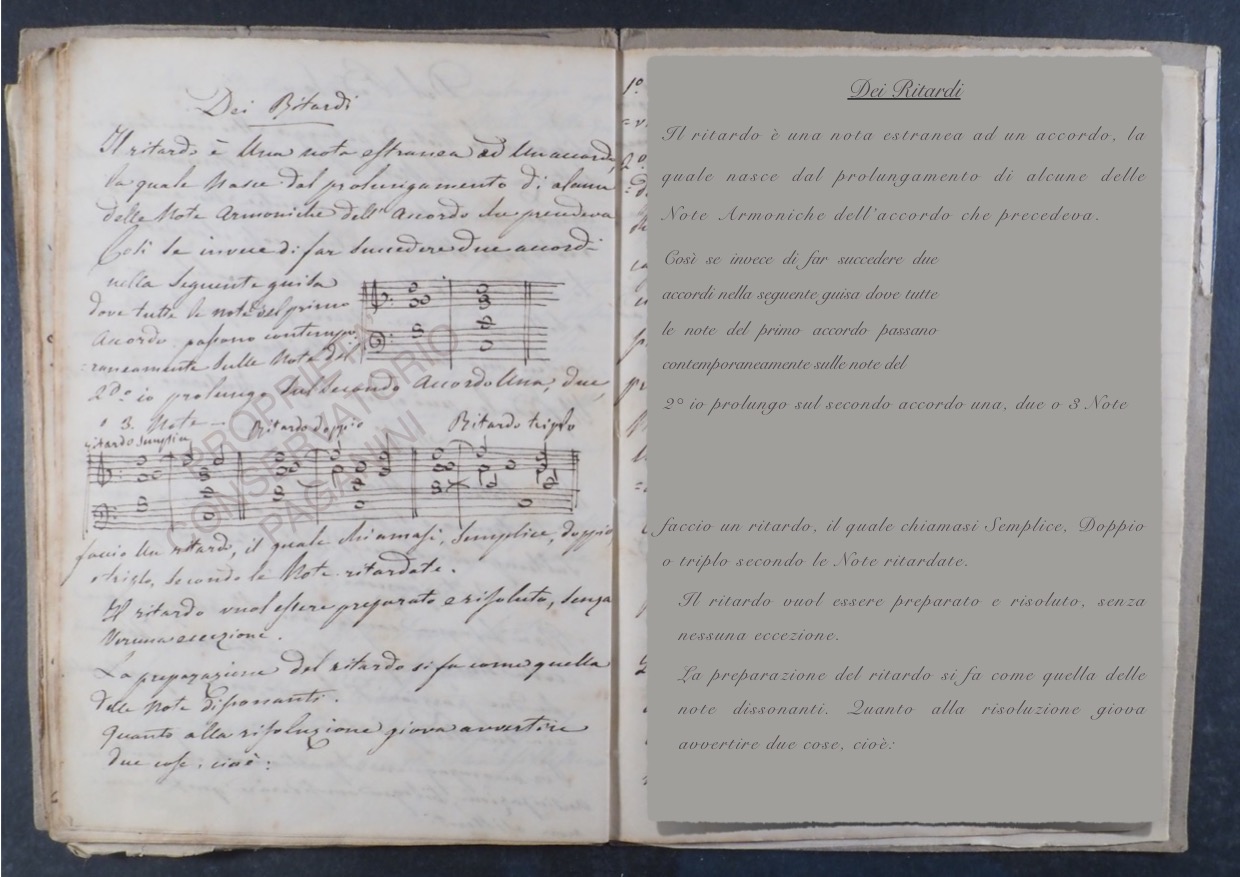 Dei Ritardi
Il ritardo è Una nota estranea ad Un accordo,
la quale Nasce dal prolungamento di alcuna
delle Note Armoniche dell'Accordo che precedeva
Così se invece di far Succedere due accordi
nella Seguente guisa
dove tutte le note del primo
Accordo passano contempo
raneamente Sulle Note del
2do io prolungo Sul Secondo Accordo Una, due,
o 3. Note
ritardo Semplice Ritardo doppio Ritardo triplo
faccio Un ritardo, il quale chiamasi, Semplice, doppio
o triplo, Secondo le Note ritardate.
Il ritardo vuol essere preparato e risoluto, senza
Veruna eccezione.
La preparazione del ritardo si fa come quella
delle Note dissonanti.
Quanto alla risoluzione giova avvertire
due cose, cioè:
PROPRIETÀ
CONSERVATORIO
PAGANINI
1º
2º
Dei Ritardi
Il ritardo è una nota estranea ad un accordo, la
quale nasce dal prolungamento di alcune delle
Note Armoniche dell'accordo che precedeva.
Così se invece di far succedere due
accordi nella seguente guisa dove tutte
le note del primo accordo passano
contemporaneamente sulle note del
2° io prolungo sul secondo accordo una, due o 3 Note
faccio un ritardo, il quale chiamasi Semplice, Doppio
o triplo secondo le Note ritardate.
Il ritardo vuol essere preparato e risoluto, senza
nessuna eccezione.
La preparazione del ritardo si fa come quella delle
note dissonanti. Quanto alla risoluzione giova
avvertire due cose, cioè: